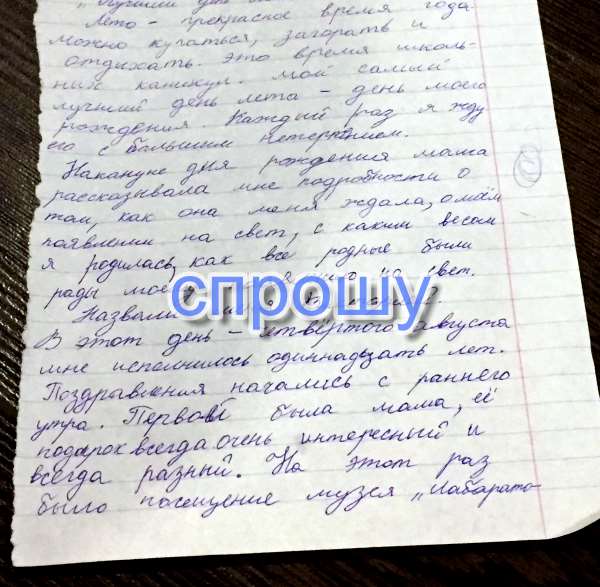 „Лучший
Лето - прекрасное время года.
можно купаться, загорать и
отдыхать. это время школь-
ных каникул. мой самый
лучший день лета - день моего
рождения. Каждый раз я жду
его с большим нетерпением.
Накануне дня рождения мама
рассказывала мне подробности о
том, как она меня ждала, о моём
появлении на свет, с каким весом
я родилась, как все родные были
рады моему на свет.
спрошу
Назвали
В этот день - четвёртого августа
мне исполнилось одиннадцать лет.
Поздравления начались с раннего
утра. Первой была мама, её
подарок всегда очень интересный и
всегда разный. На этот раз
было посещение музея „Лабарато